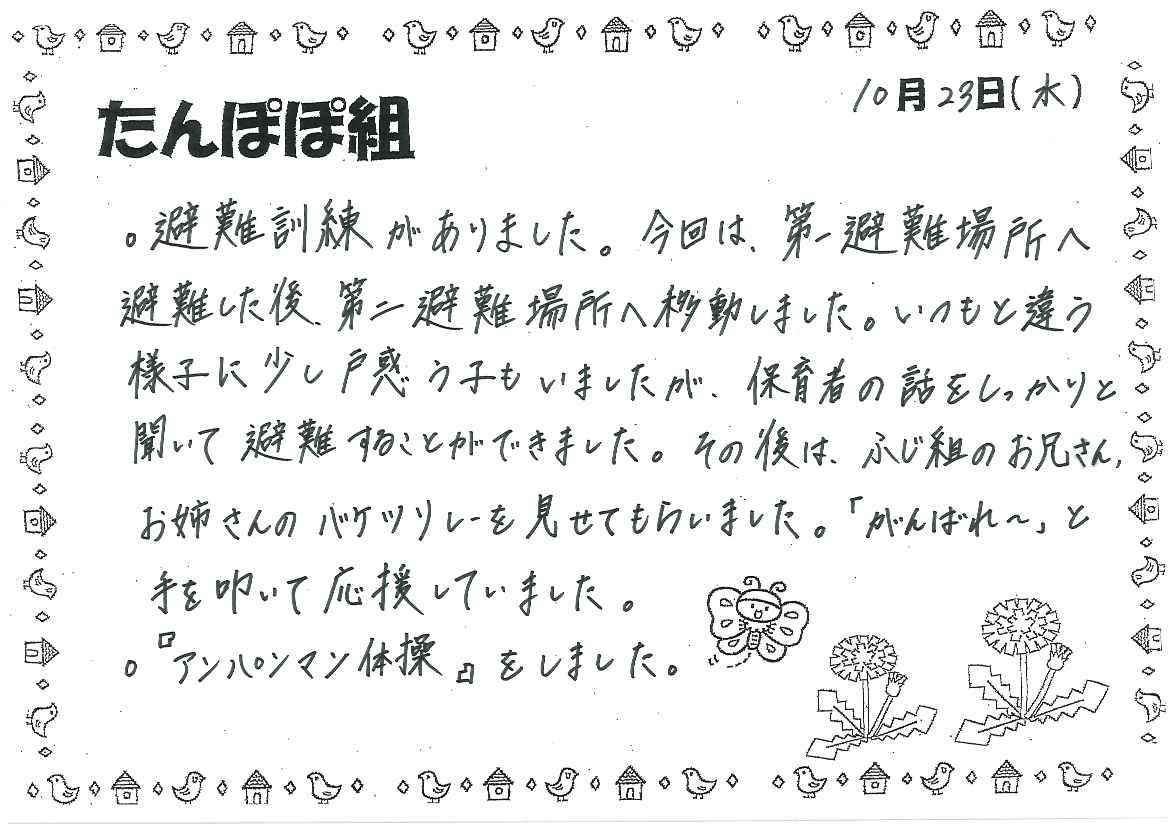 10月23日(水)
たんぽぽ組
。避難訓練がありました。今回は、第一避難場所へ
避難した後、第二避難場所へ移動しました。いつもと違う
様子に少し戸惑う子もいましたが、保育者の話をしっかりと
聞いて避難することができました。その後は、ふじ組のお兄さん,
お姉さんのバケツリレーを見せてもらいました。「がんばれ〜」と
手を叩いて応援していました。
。『アンパンマン体操』をしました。